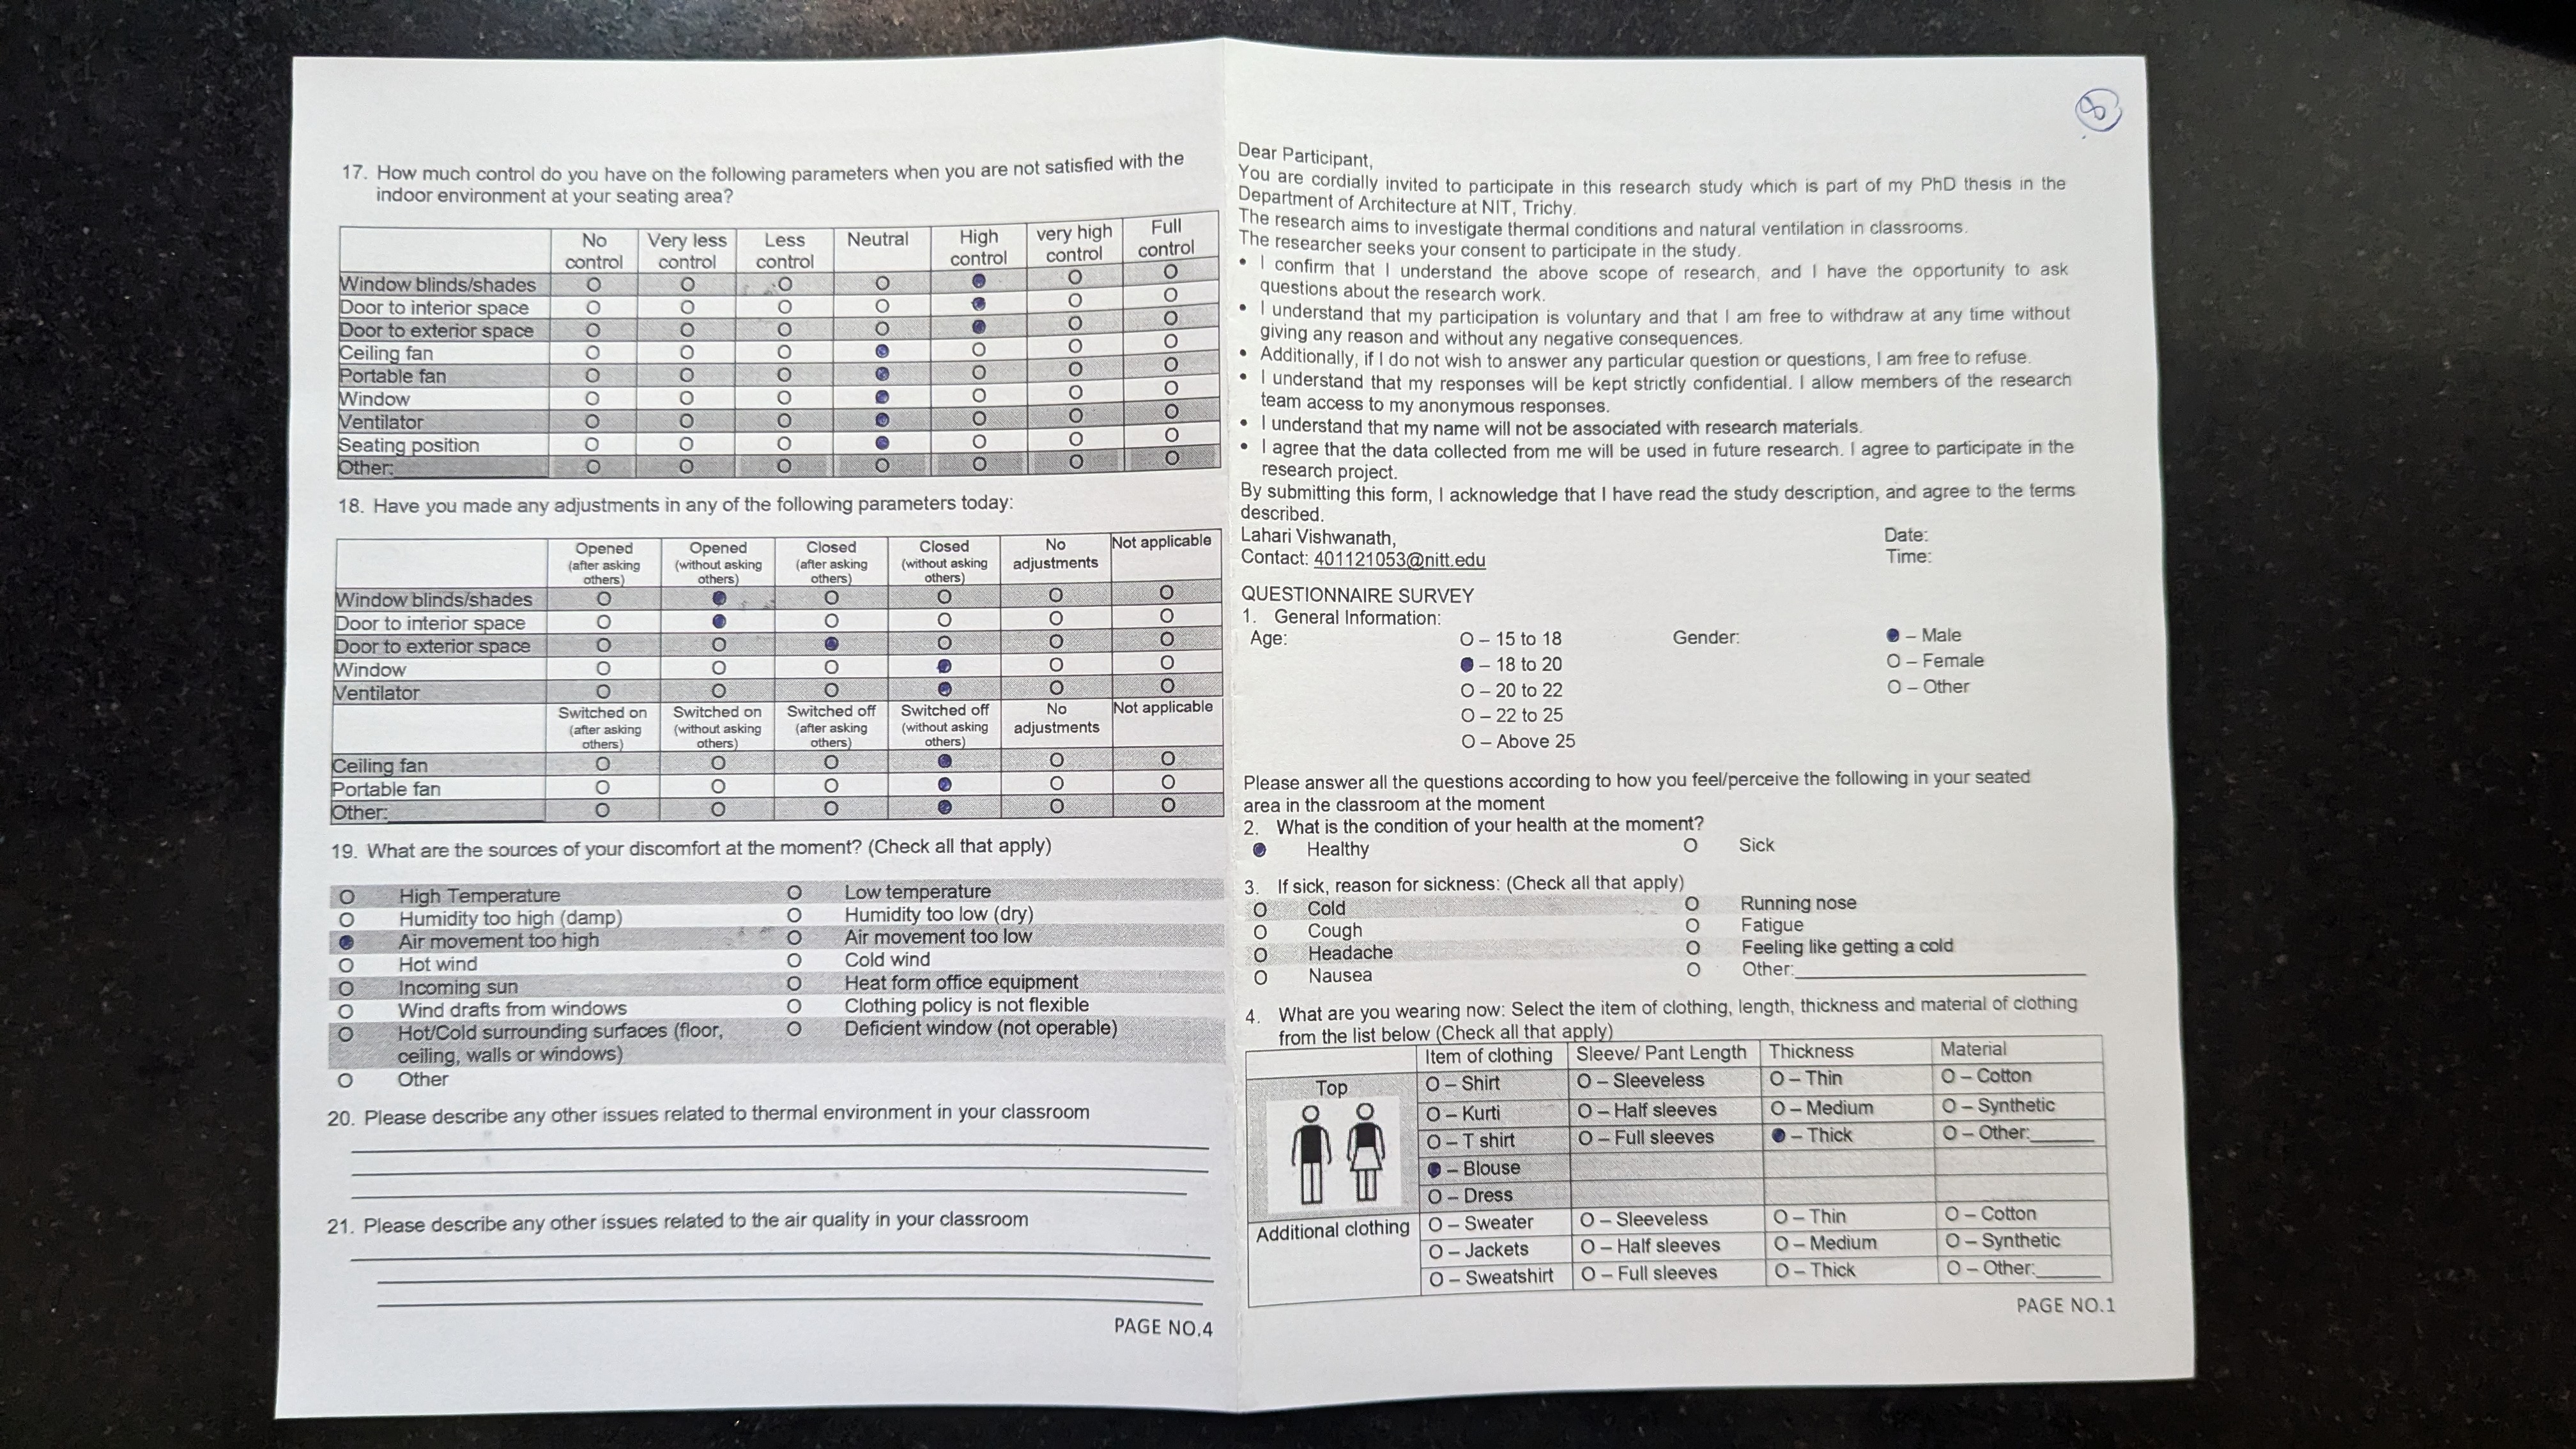 17. How much control do you have on the following parameters when you are not satisfied with the
indoor environment at your seating area?
No control Very less control Less control Neutral High control very high control Full control
Window blinds/shades O O O O ● O O
Door to interior space O O O O ● O O
Door to exterior space O O O O ● O O
Ceiling fan O O O ● O O O
Portable fan O O O ● O O O
Window O O O ● O O O
Ventilator O O O ● O O O
Seating position O O O ● O O O
Other: O O O O O O O
18. Have you made any adjustments in any of the following parameters today:
Opened (after asking others) Opened (without asking others) Closed (after asking others) Closed (without asking others) No adjustments Not applicable
Window blinds/shades O ● O O O O
Door to interior space O ● O O O O
Door to exterior space O O ● O O O
Window O O O ● O O
Ventilator O O O ● O O
Switched on (after asking others) Switched on (without asking others) Switched off (after asking others) Switched off (without asking others) No adjustments Not applicable
Ceiling fan O O O ● O O
Portable fan O O O ● O O
Other:________ O O O ● O O
19. What are the sources of your discomfort at the moment? (Check all that apply)
O High Temperature O Low temperature
O Humidity too high (damp) O Humidity too low (dry)
● Air movement too high O Air movement too low
O Hot wind O Cold wind
O Incoming sun O Heat form office equipment
O Wind drafts from windows O Clothing policy is not flexible
O Hot/Cold surrounding surfaces (floor, O Deficient window (not operable)
ceiling, walls or windows)
O Other
20. Please describe any other issues related to thermal environment in your classroom
21. Please describe any other issues related to the air quality in your classroom
PAGE NO.4
8
Dear Participant,
You are cordially invited to participate in this research study which is part of my PhD thesis in the
Department of Architecture at NIT, Trichy.
The research aims to investigate thermal conditions and natural ventilation in classrooms.
The researcher seeks your consent to participate in the study.
• I confirm that I understand the above scope of research, and I have the opportunity to ask
questions about the research work.
• I understand that my participation is voluntary and that I am free to withdraw at any time without
giving any reason and without any negative consequences.
• Additionally, if I do not wish to answer any particular question or questions, I am free to refuse.
• I understand that my responses will be kept strictly confidential. I allow members of the research
team access to my anonymous responses.
• I understand that my name will not be associated with research materials.
• I agree that the data collected from me will be used in future research. I agree to participate in the
research project.
By submitting this form, I acknowledge that I have read the study description, and agree to the terms
described.
Lahari Vishwanath, Date:
Contact: 401121053@nitt.edu Time:
QUESTIONNAIRE SURVEY
1. General Information:
Age: O – 15 to 18 Gender: ● – Male
● – 18 to 20 O – Female
O – 20 to 22 O – Other
O – 22 to 25
O – Above 25
Please answer all the questions according to how you feel/perceive the following in your seated
area in the classroom at the moment
2. What is the condition of your health at the moment?
● Healthy O Sick
3. If sick, reason for sickness: (Check all that apply)
O Cold O Running nose
O Cough O Fatigue
O Headache O Feeling like getting a cold
O Nausea O Other:________
4. What are you wearing now: Select the item of clothing, length, thickness and material of clothing
from the list below (Check all that apply)
Item of clothing Sleeve/ Pant Length Thickness Material
Top O – Shirt O – Sleeveless O – Thin O – Cotton
O – Kurti O – Half sleeves O – Medium O – Synthetic
O – T shirt O – Full sleeves ● – Thick O – Other:______
● – Blouse
O – Dress
Additional clothing O – Sweater O – Sleeveless O – Thin O – Cotton
O – Jackets O – Half sleeves O – Medium O – Synthetic
O – Sweatshirt O – Full sleeves O – Thick O – Other:______
PAGE NO.1